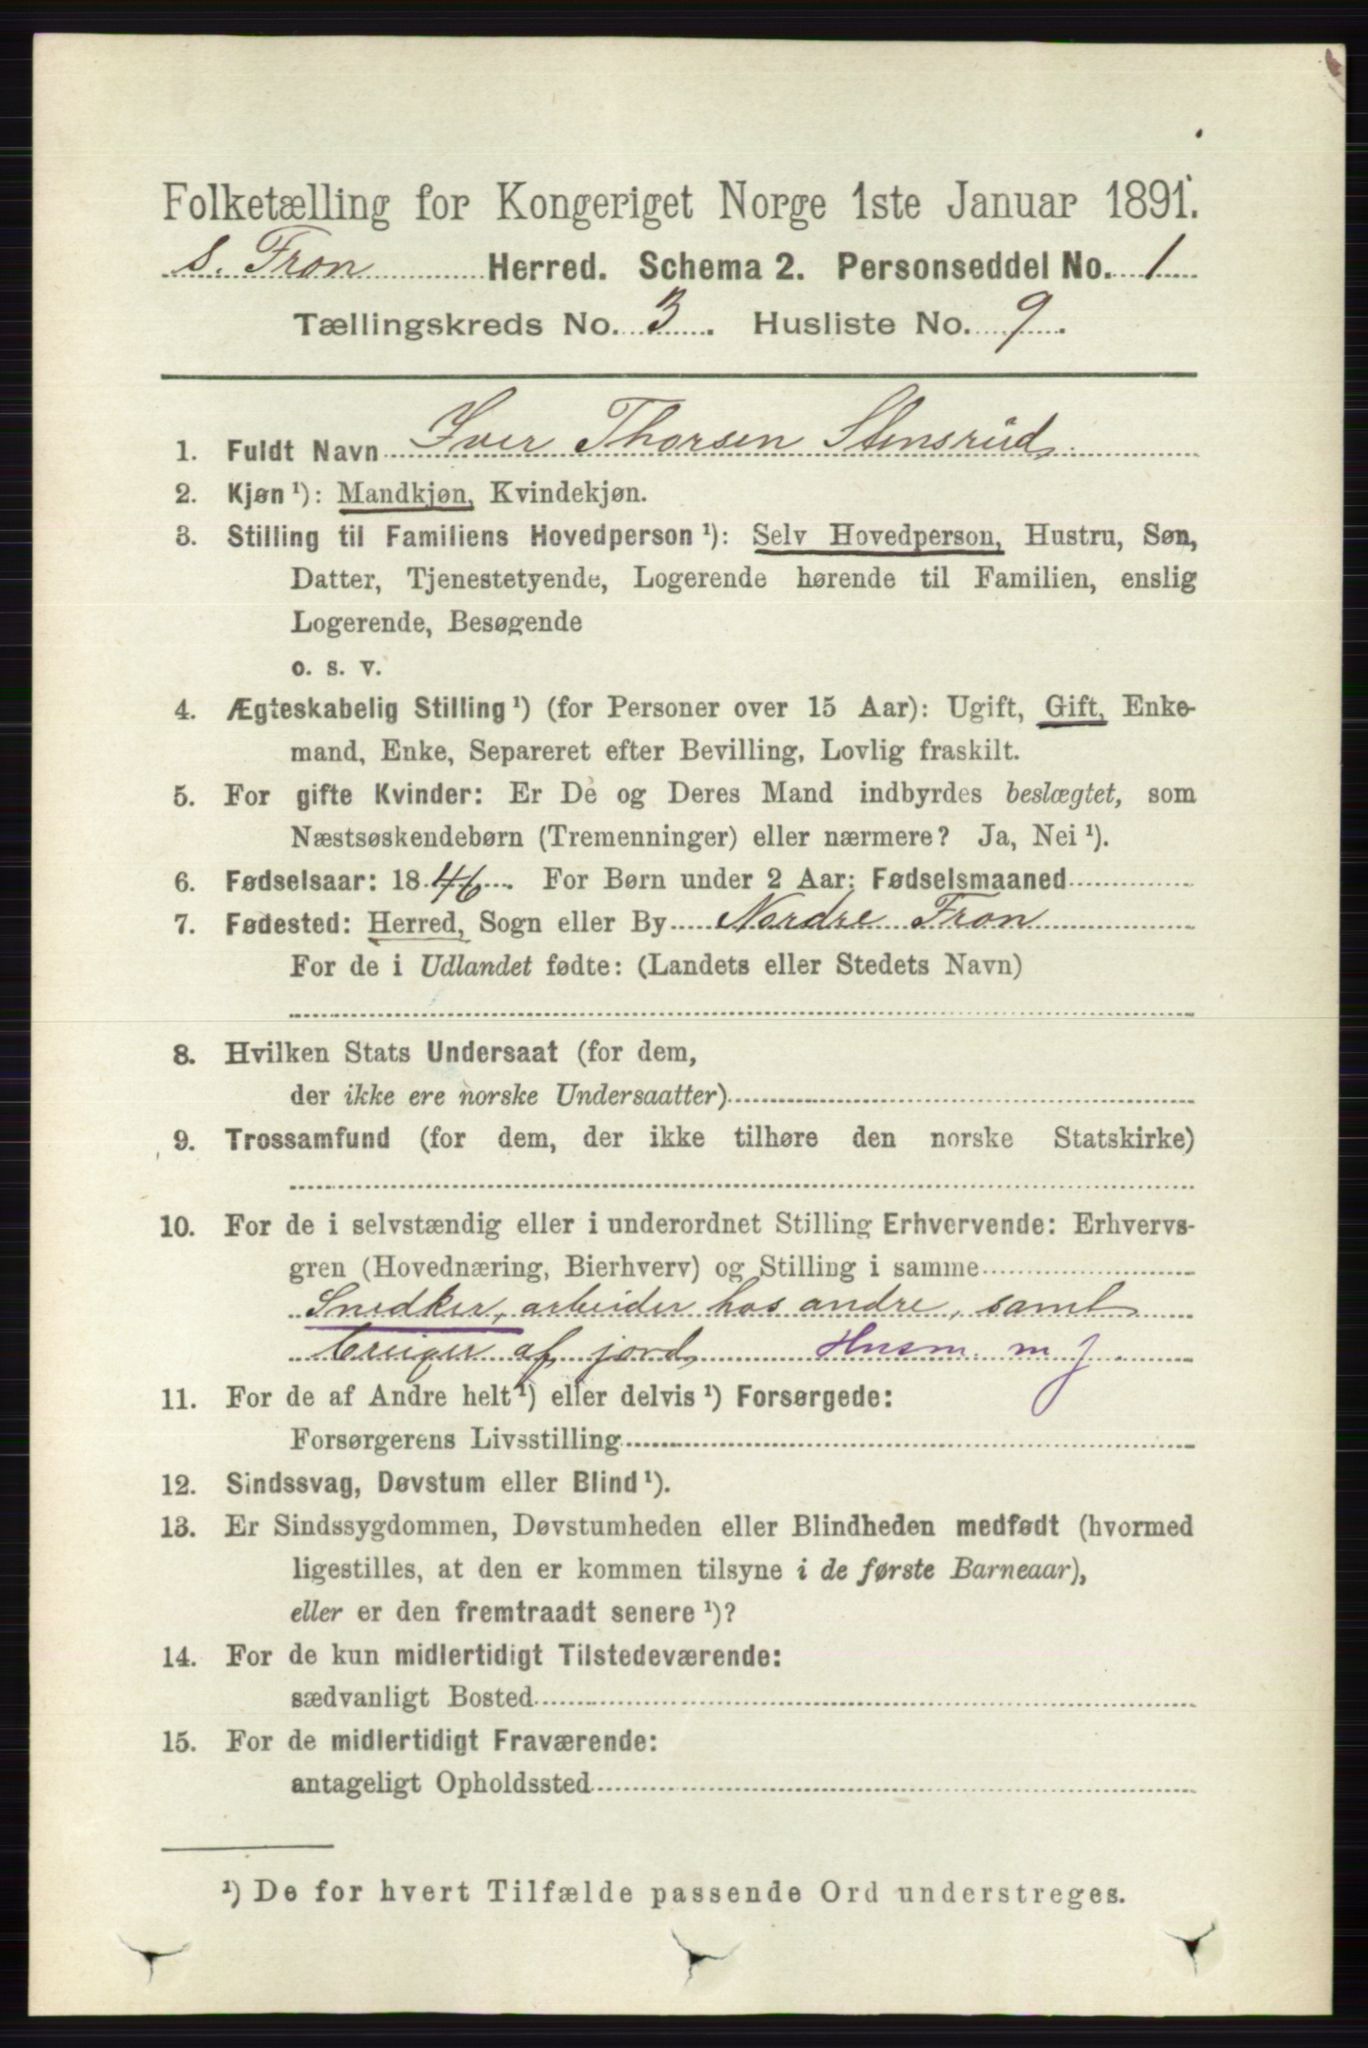 Folketælling for Kongeriget Norge 1ste Januar 1891.
S. Fron Herred. Schema 2. Personseddel No. 1
Tællingskreds No. 3. Husliste No. 9.
1. Fuldt Navn Iver Thorsen Stensrud
2. Kjøn ¹): Mandkjøn, Kvindekjøn.
3. Stilling til Familiens Hovedperson ¹): Selv Hovedperson, Hustru, Søn,
Datter, Tjenestetyende, Logerende hørende til Familien, enslig
Logerende, Besøgende
o. s. v.
4. Ægteskabelig Stilling ¹) (for Personer over 15 Aar): Ugift, Gift, Enke-
mand, Enke, Separeret efter Bevilling, Lovlig fraskilt.
5. For gifte Kvinder: Er De og Deres Mand indbyrdes beslægtet, som
Næstsøskendebørn (Tremenninger) eller nærmere? Ja, Nei ¹).
6. Fødselsaar: 1846. For Børn under 2 Aar: Fødselsmaaned
7. Fødested: Herred, Sogn eller By Nordre Fron
For de i Udlandet fødte: (Landets eller Stedets Navn)
8. Hvilken Stats Undersaat (for dem,
der ikke ere norske Undersaatter)
9. Trossamfund (for dem, der ikke tilhøre den norske Statskirke)
10. For de i selvstændig eller i underordnet Stilling Erhvervende: Erhvervs-
gren (Hovednæring, Bierhverv) og Stilling i samme
Snedker, arbeider hos andre, samt
bruger af jord Husm. m j.
11. For de af Andre helt ¹) eller delvis ¹) Forsørgede:
Forsørgerens Livsstilling
12. Sindssvag, Døvstum eller Blind ¹).
13. Er Sindssygdommen, Døvstumheden eller Blindheden medfødt (hvormed
ligestilles, at den er kommen tilsyne i de første Barneaar),
eller er den fremtraadt senere ¹)?
14. For de kun midlertidigt Tilstedeværende:
sædvanligt Bosted
15. For de midlertidigt Fraværende:
antageligt Opholdssted
¹) De for hvert Tilfælde passende Ord understreges.